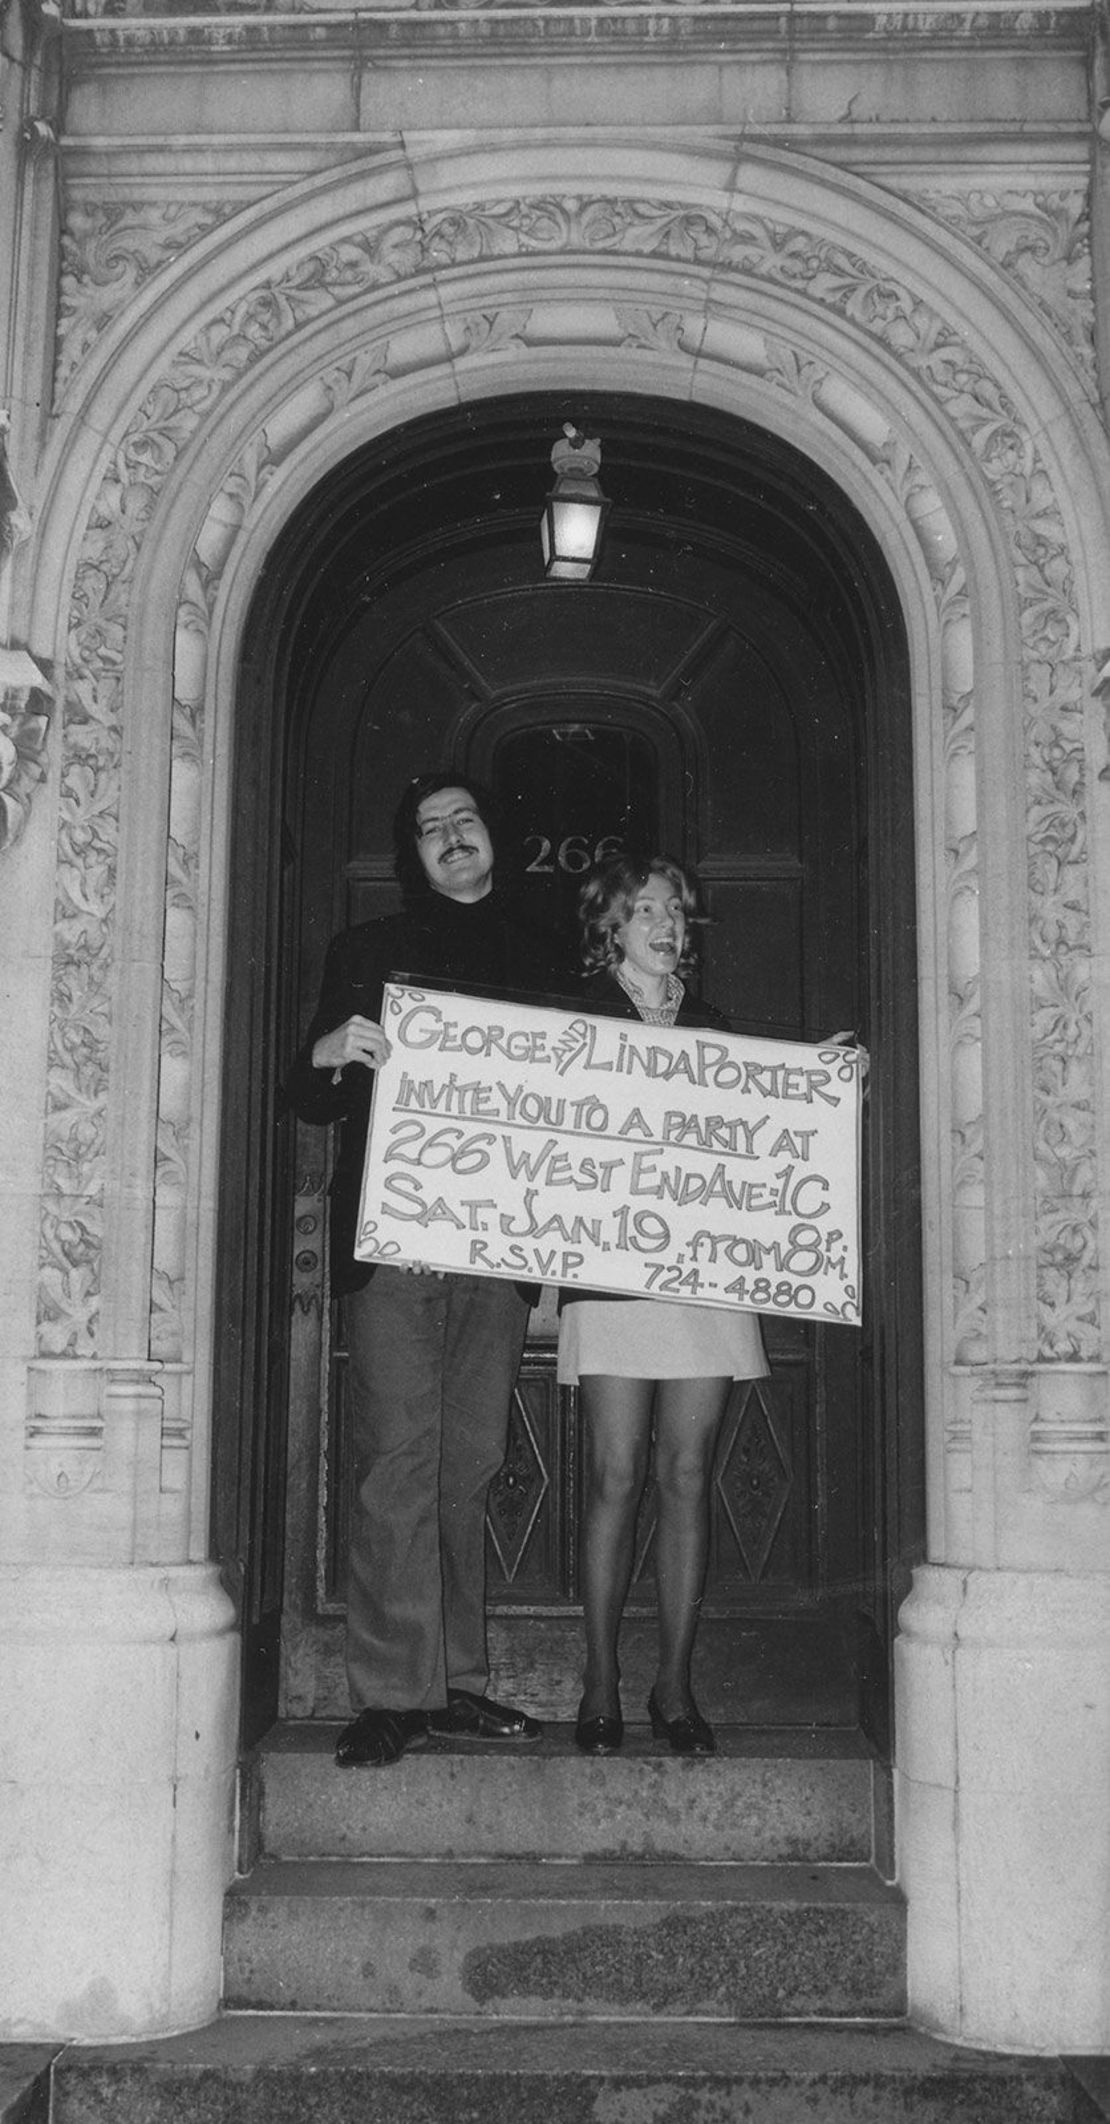 266
GEORGE AND LINDA PORTER
INVITE YOU TO A PARTY AT
266 WEST END AVE-1C
SAT. JAN. 19, from 8 P.M.
R.S.V.P. 724-4880